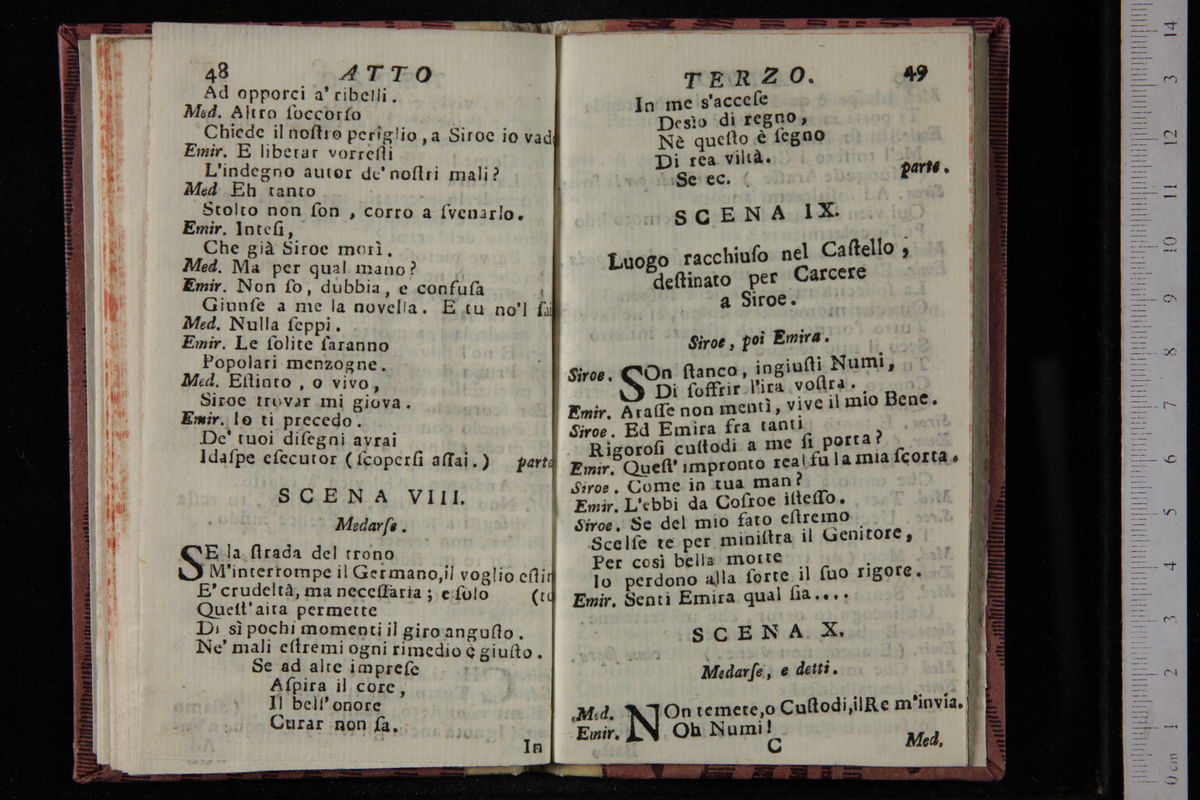 48 ATTO
Ad opporci a' ribelli.
Med. Altro ſoccorſo
Chiede il noſtro periglio, a Siroe io vad
Emir. E liberar vorreſti
L'indegno autor de' noſtri mali?
Med Eh tanto
Stolto non ſon, corro a ſvenarlo.
Emir. Inteſi,
Che già Siroe morì.
Med. Ma per qual mano?
Emir. Non ſo, dubbia, e confuſa
Giunſe a me la novella. E tu no'l ſai
Med. Nulla ſeppi.
Emir. Le ſolite ſaranno
Popolari menzogne.
Med. Eſtinto, o vivo,
Siroe trovar mi giova.
Emir. Io ti precedo.
De' tuoi diſegni avrai
Idaſpe eſecutor (ſcoperſi aſſai.) parte
SCENA VIII.
Medarſe.
SE la ſtrada del trono
M'interrompe il Germano, il voglio eſtin
E' crudeltà, ma neceſſaria; e ſolo (to
Queſt'aita permette
Di sì pochi momenti il giro anguſto.
Ne' mali eſtremi ogni rimedio è giuſto.
Se ad alte impreſe
Aſpira il core,
Il bell'onore
Curar non ſa.
In
TERZO. 49
In me s'acceſe
Desìo di regno,
Nè queſto è ſegno
Di rea viltà.
Se ec. parte.
SCENA IX.
Luogo racchiuſo nel Caſtello,
deſtinato per Carcere
a Siroe.
Siroe, poi Emira.
Siroe. SOn ſtanco, ingiuſti Numi,
Di ſoffrir l'ira voſtra.
Emir. Araſſe non mentì, vive il mio Bene.
Siroe. Ed Emira fra tanti
Rigoroſi cuſtodi a me ſi porta?
Emir. Queſt' impronto real fu la mia ſcorta.
Siroe. Come in tua man?
Emir. L'ebbi da Coſroe iſteſſo.
Siroe. Se del mio fato eſtremo
Scelſe te per miniſtra il Genitore,
Per così bella morte
Io perdono alla ſorte il ſuo rigore.
Emir. Senti Emira qual ſia....
SCENA X.
Medarſe, e detti.
Med. NOn temete, o Cuſtodi, il Re m'invia.
Emir. Oh Numi!
C Med.
14
3
12
11
10
9
8
7
6
5
4
3
2
1
0 cm